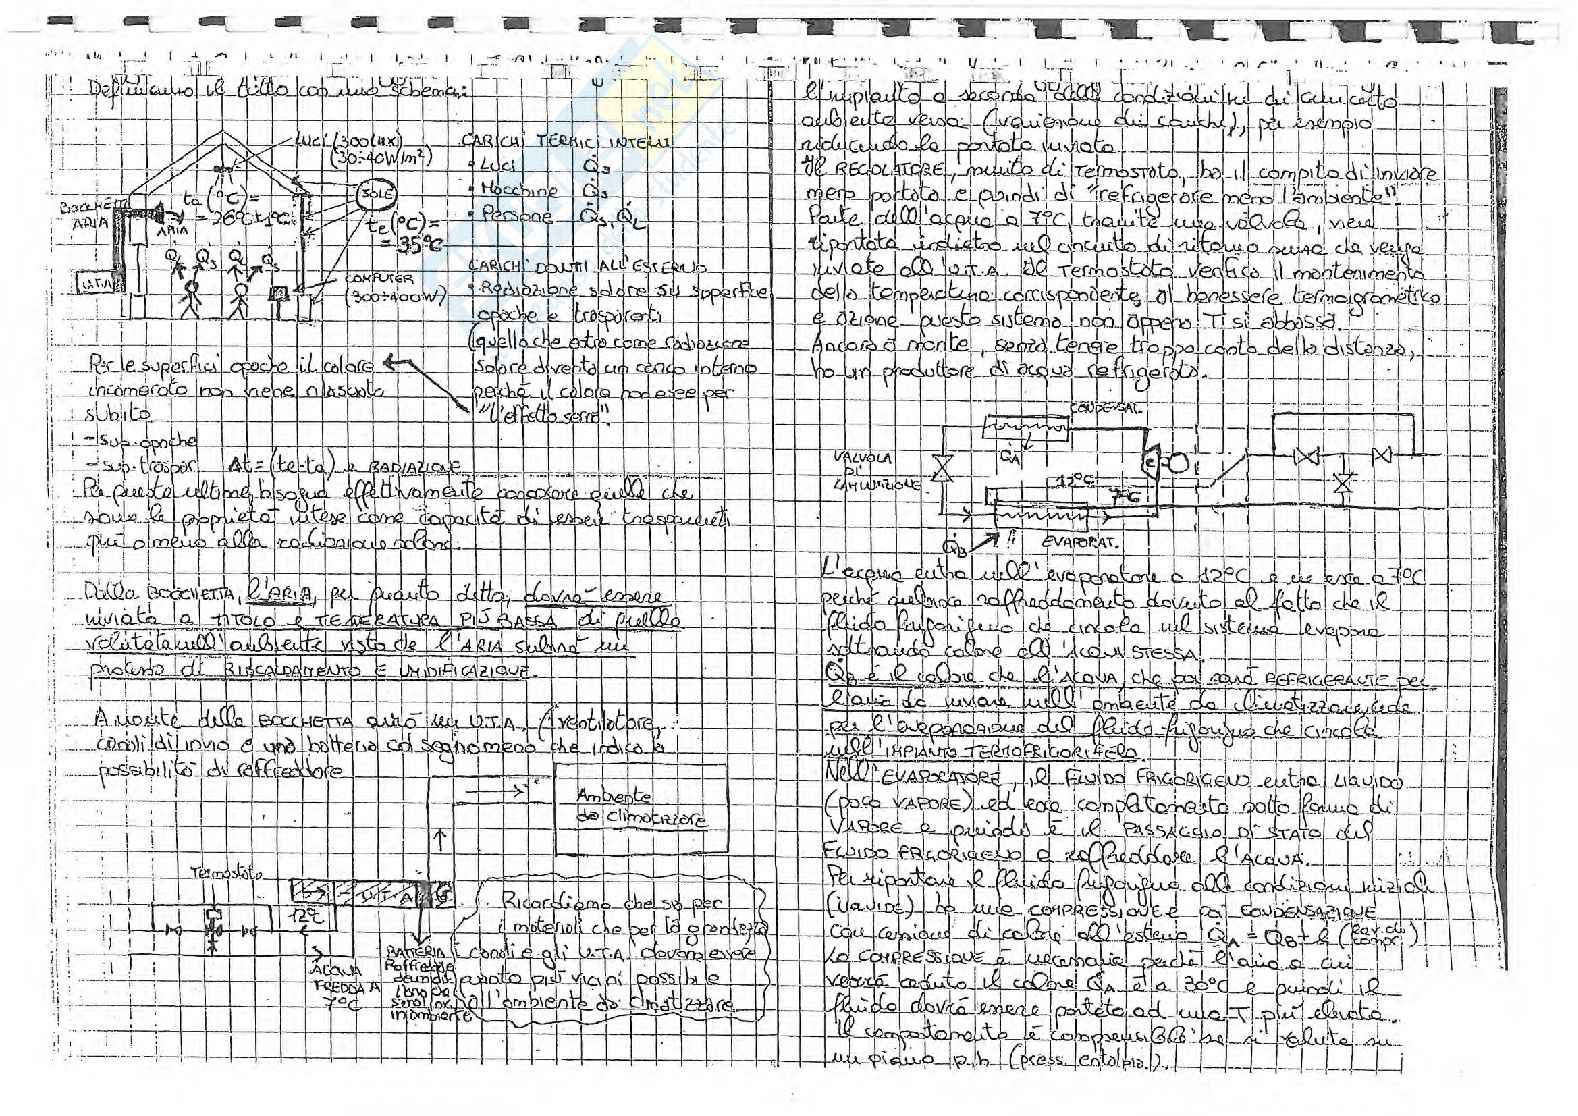 Definiamo il tutto con uno schema:
LUCI (300 lux)
(30÷40W/m²)
ta (°C)=
= 26°C±1°C
SOLE
te (°C)=
= 35°C
BOCCHETTA
ARIA
ARIA
Q̇L Q̇S Q̇L Q̇S
U.T.A.
COMPUTER
(300÷400W)
CARICHI TERMICI INTERNI
• Luci Q̇S
• Macchine Q̇S
• Persone Q̇S, Q̇L
CARICHI DOVUTI ALL'ESTERNO
• Radiazione solare su superfici
opache e trasparenti
(quella che entra come radiazione
solare diventa un carico interno
perché il calore non esce per
"l'effetto serra".
Per le superfici opache il calore
incamerato non viene rilasciato
subito
- sup. opache
- sup. traspar. Δt=(te-ta) e RADIAZIONE
Per queste ultime, bisogna effettivamente conoscere quelle che
sono le proprietà intese come capacità di essere trasparenti
più o meno alla radiazione solare.
Dalla BOCCHETTA, l'ARIA, per quanto detto, dovrà essere
inviata a TITOLO e TEMPERATURA PIÙ BASSA di quella
valutata nell'ambiente visto che l'ARIA subirà un
processo di RISCALDAMENTO E UMIDIFICAZIONE.
A monte della BOCCHETTA avrò un U.T.A. (ventilatore,
canali di invio e una batteria col segno meno che indica la
possibilità di raffreddare
Ambiente
da climatizzare
Termostato
U T A
12°C
ACQUA
FREDDA A
7°C
BATTERIA
Raffredda
l'aria da
in ambiente
Ricordiamo che sia per
i materiali che per la grandezza
i canali e gli U.T.A. devono essere
quanto più vicini possibile
all'ambiente da climatizzare.
l'impianto a seconda delle condizioni di carico
ambiente versa (variazione dei carichi), per esempio
riducendo la portata inviata.
Il REGOLATORE, munito di TERMOSTATO, ha il compito di inviare
meno portata e quindi di "refrigerare meno l'ambiente".
Parte dell'acqua a 7°C, tramite una valvola, viene
riportata indietro nel circuito di ritorno senza che venga
inviata all'U.T.A. Il Termostato verifica il mantenimento
della temperatura corrispondente al benessere termoigrometrico
e aziona questo sistema non appena Ti si abbassa.
Ancora a monte, senza tenere troppo conto della distanza,
ho un produttore di acqua refrigerata.
CONDENSAT.
Q̇A
VALVOLA
DI
LAMINAZIONE
12°C
7°C
Q̇B
EVAPORAT.
L'acqua entra nell'evaporatore a 12°C e ne esce a 7°C
perché subisce raffreddamento dovuto al fatto che il
fluido frigorigeno che circola nel sistema evapora
sottraendo calore all'ACQUA STESSA.
Q̇B è il calore che l'ACQUA, che poi sarà REFRIGERANTE per
l'aria da inviare nell'ambiente da climatizzare, cede
per l'evaporazione del fluido frigorigeno che circola
nell'IMPIANTO TERMOFRIGORIFERO.
Nell'EVAPORATORE, il FLUIDO FRIGORIGENO entra LIQUIDO
(poco VAPORE) ed esce completamente sotto forma di
VAPORE e quindi è il PASSAGGIO DI STATO del
FLUIDO FRIGORIGENO a raffreddare l'ACQUA.
Per riportare il fluido frigorigeno alle condizioni iniziali
(LIQUIDE) ho una COMPRESSIONE e poi CONDENSAZIONE
con cessione di calore all'esterno Q̇A = Q̇B + L (lav. di compr.)
La COMPRESSIONE è necessaria perché l'aria a cui
verrà ceduto il calore Q̇A è a 30°C e quindi il
fluido dovrà essere portato ad una T più elevata.
Il comportamento è comprensibile se si valuta su
un piano p,h (press. entalpia).